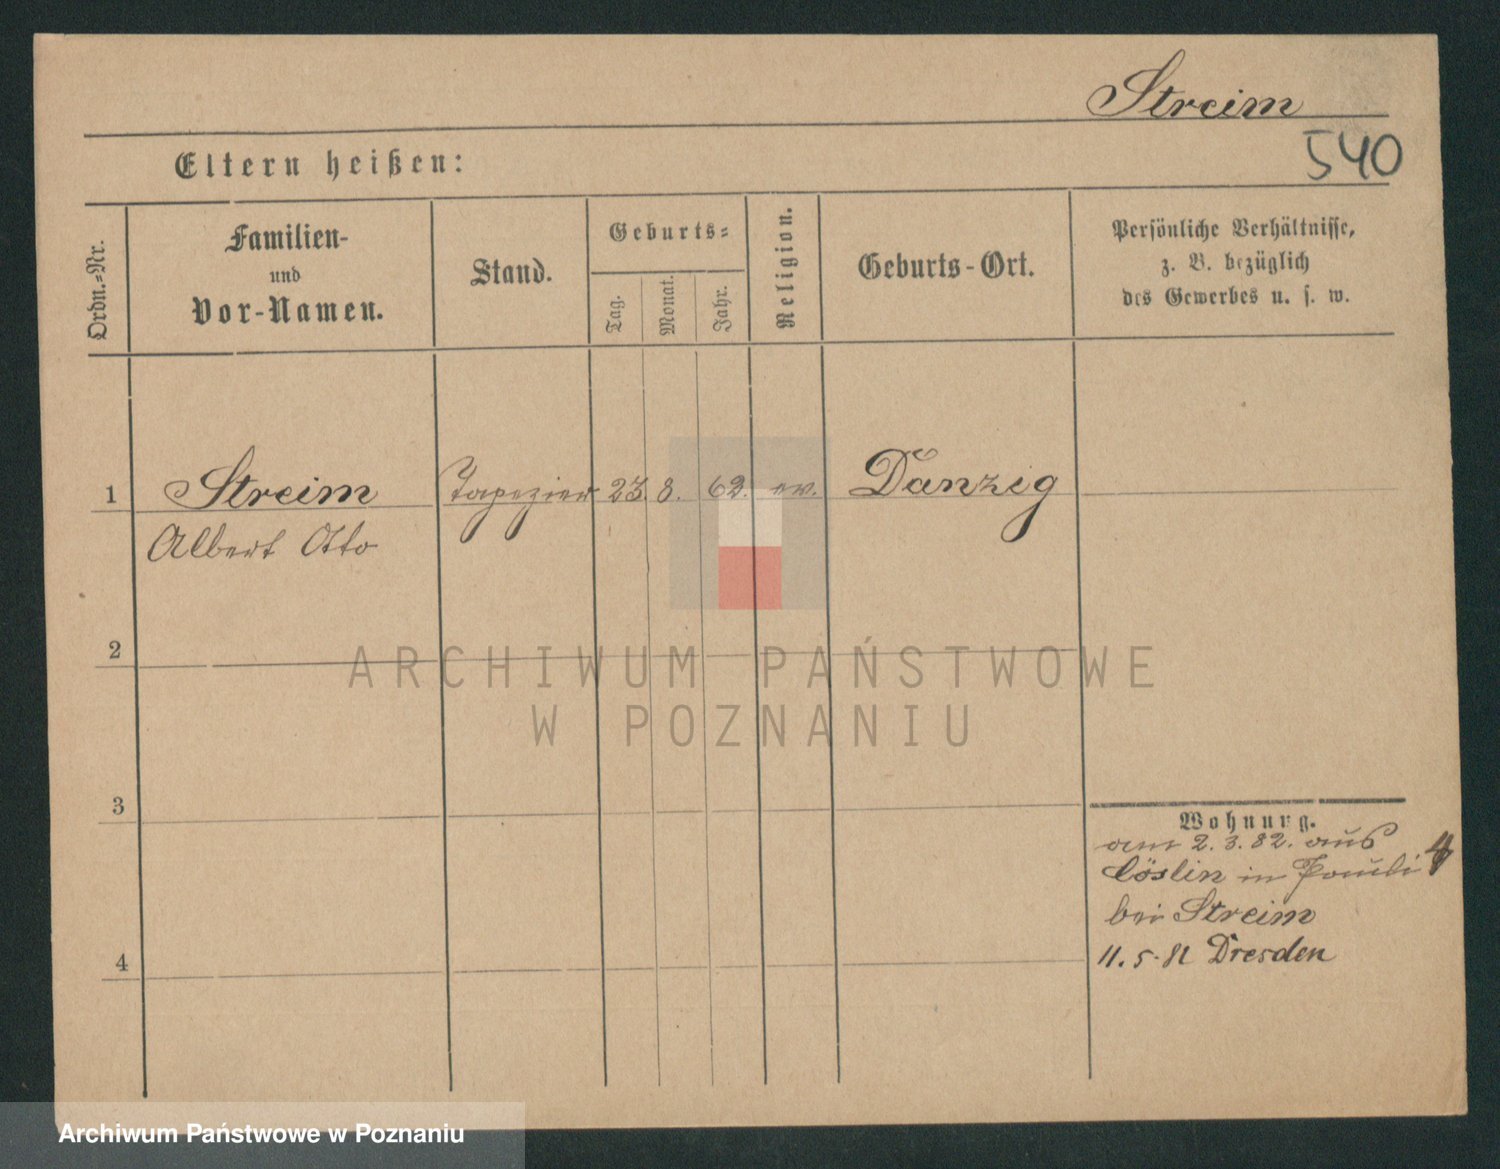 Streim
540
Eltern heißen:
Ordn.-Nr.
Familien-
und
Vor-Namen.
Stand.
Geburts-
Tag.
Monat.
Jahr.
Religion.
Geburts-Ort.
Persönliche Verhältnisse,
z. B. bezüglich
des Gewerbes u. s. w.
1 Streim Tapezier 23. 8. 62. ev. Danzig
Albert Otto
2
ARCHIWUM PAŃSTWOWE
W POZNANIU
3
Wohnung.
am 2.3.82. aus
Cöslin in Pauli 4
bei Streim
4
11.5.82 Dresden
Archiwum Państwowe w Poznaniu